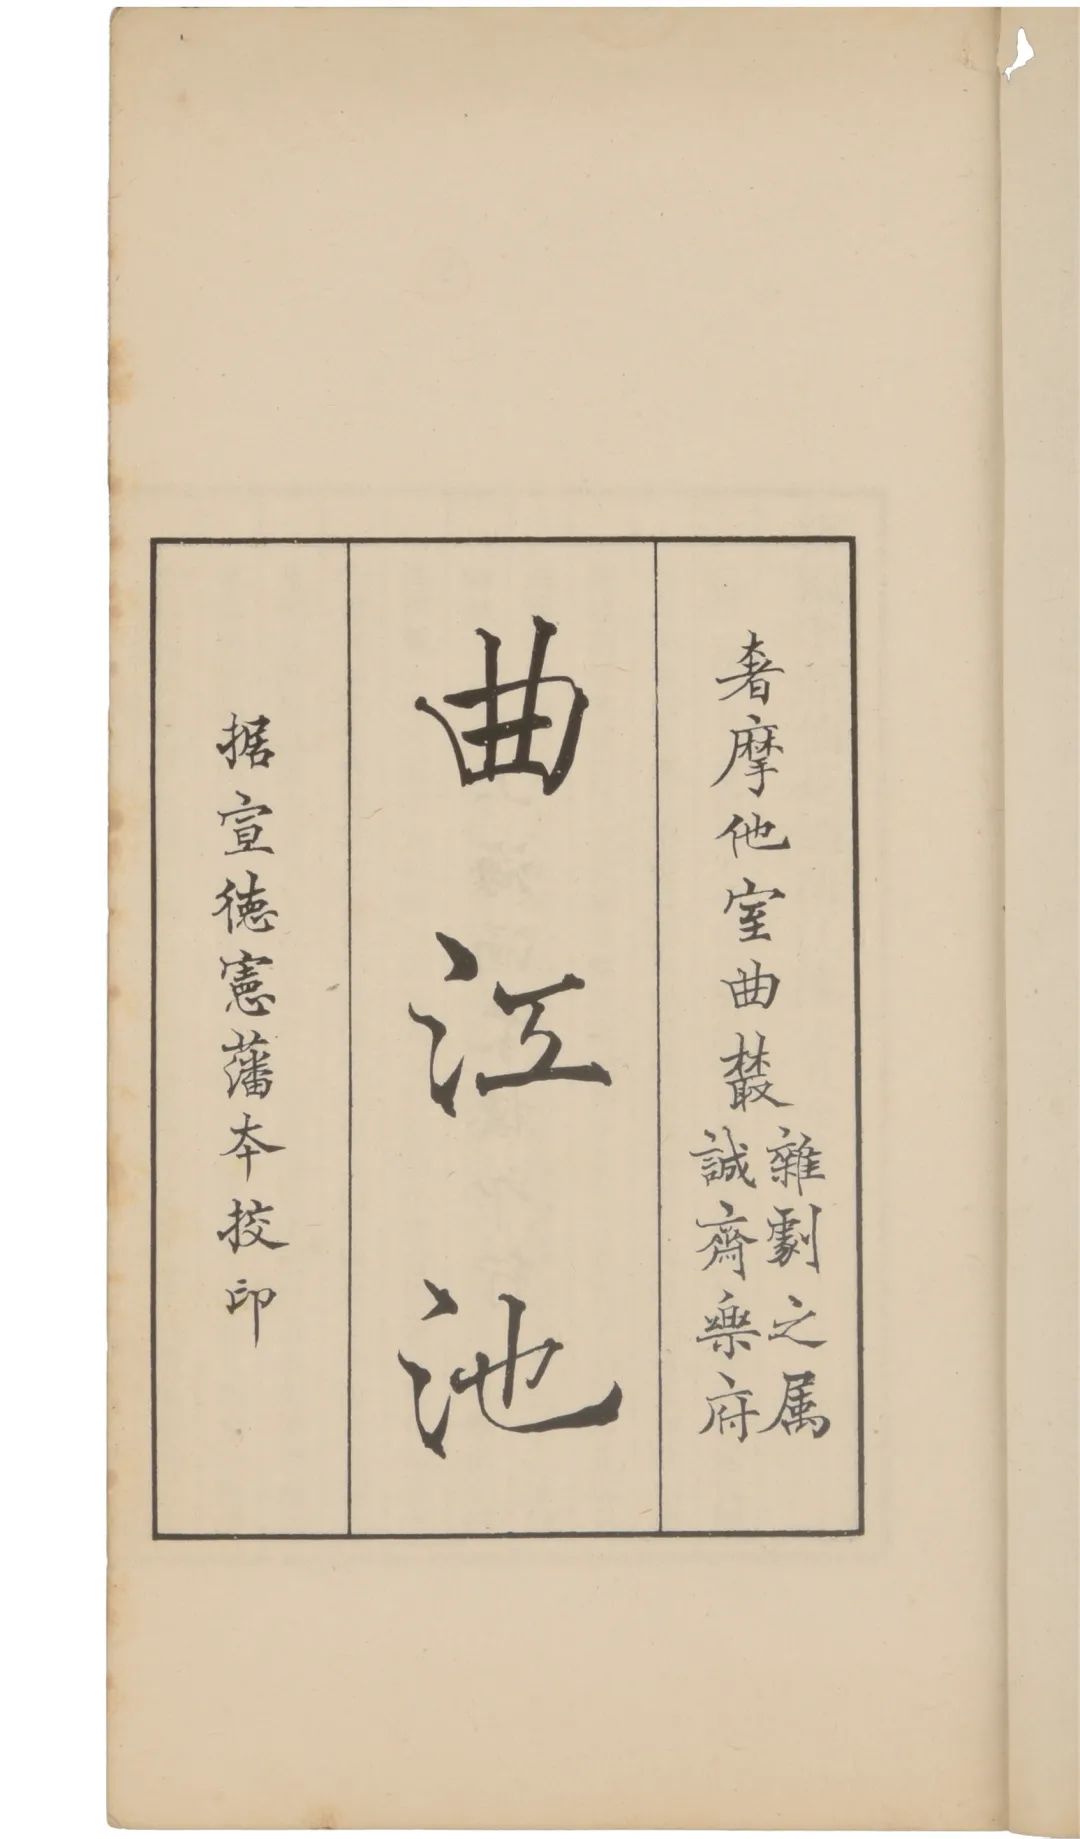 奢摩他室曲叢
雜劇之属
誠齋樂府
曲江池
据宣徳憲藩本挍印